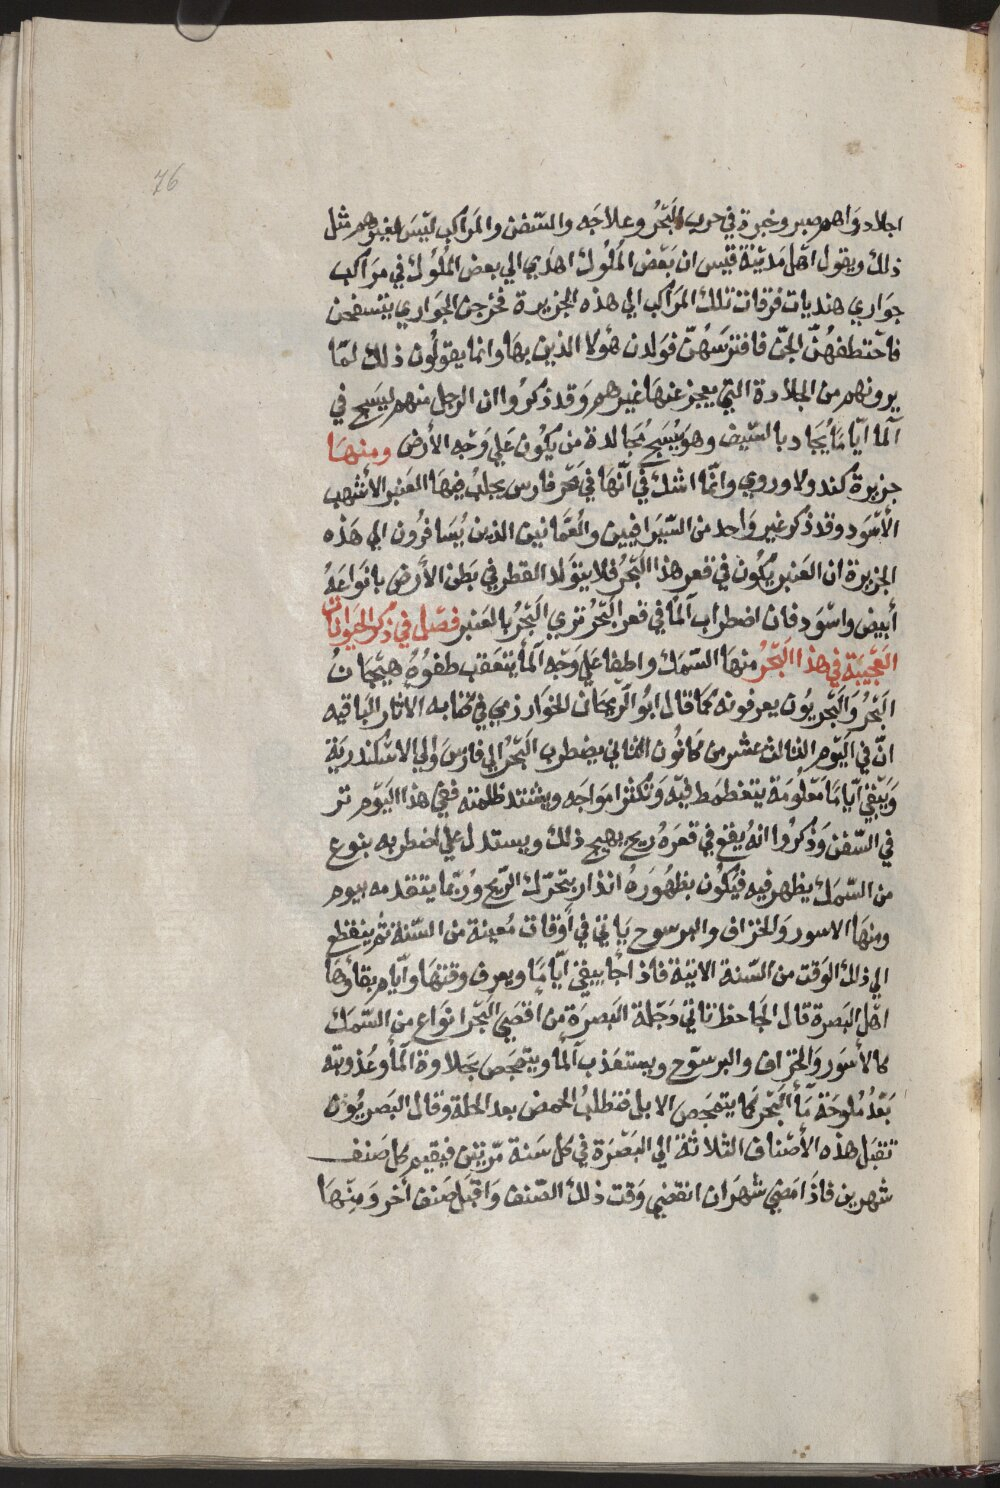 76
اجلاد واهم صبر وخبرة في حرب البحر وعلاجه والسفن والمراكب ليس لغيرهم مثل
ذلك ويقول اهل مدينة قيس ان بعض الملوك اهدي الي بعض الملوك في مراكب
جواري هنديات فرفات تلك المراكب الي هذه الجزيرة فخرجن الجواري يتسفحن
فاختطفهن الجن فافترسهن فولدن هولا الذين بها وانما يقولون ذلك لما
يرونهم من الجلادة التي يعجز عنها غيرهم وقد ذكروا ان الرجل منهم ليسبح في
الما اياما يجاد بالسيف وهو يسبح مجالدة من يكون علي وجه الأرض ومنها
جزيرة كندولاوروي وانما اشك في أنها في بحر فارس يجلب فيها العنبر الأشهب
الأسود وقد ذكر غير واحد من السيرافيين والعمانيين الذين يسافرون الي هذه
الجزيرة ان العنبر يكون في قعر هذا البحر فلا يتولد القطر في بطن الأرض بانواعه
أبيض واسود فان اضطراب الما في قعر البحر تري البحر بالعنبر فصل في ذكر الحيوانات
العجيبة في هذا البحر منها السمك واطفا علي وجه الما يتعقب طفوه هيجان
البحر والبحريون يعرفونه كما قال ابو الريحان الخوارزمي في كتابه الاثار الباقيه
ان في اليوم الثالث عشر من كانون الثاني يضطرب البحر الي فارس والي الاسكندرية
ويبقي اياما معلومة يتغطمط فيه وتكثر امواجه ويشتد ظلمته ففي هذا اليوم تر
في السفن وذكروا انه يقع في قعره ريح يهيج ذلك ويستدل علي اضطربه بنوع
من السمك يظهر فيه فيكون بظهوره انذار بتحرك الريح وربما يتقدمه بيوم
ومنها الاسور والخنزاف والبرسوح ياتي في أوقات معينة من السنة ثم ينقطع
الي ذلك الوقت من السنة الاتية فاذ اجا يبقي اياما ويعرف وقتها وايام بقاؤها
اهل البصرة قال الجاحظ تاتي دجلة البصرة من اقصي البحر انواع من السمك
كالأسور والخزاف والبرسوح ويستعذب الما ويتمجص بجلاوة الما وعذوبته
بعد ملوحة ما البحر كما يتمجص الابل فتطلب الحمض بعد الخلة وقال البصريون
تقبل هذه الأصناف الثلاثة الي البصرة في كل سنة مرتين فيقيم كل صنف
شهرين فاذا مضي شهران انقضي وقت ذلك الصنف واقبل صنف أخر ومنها